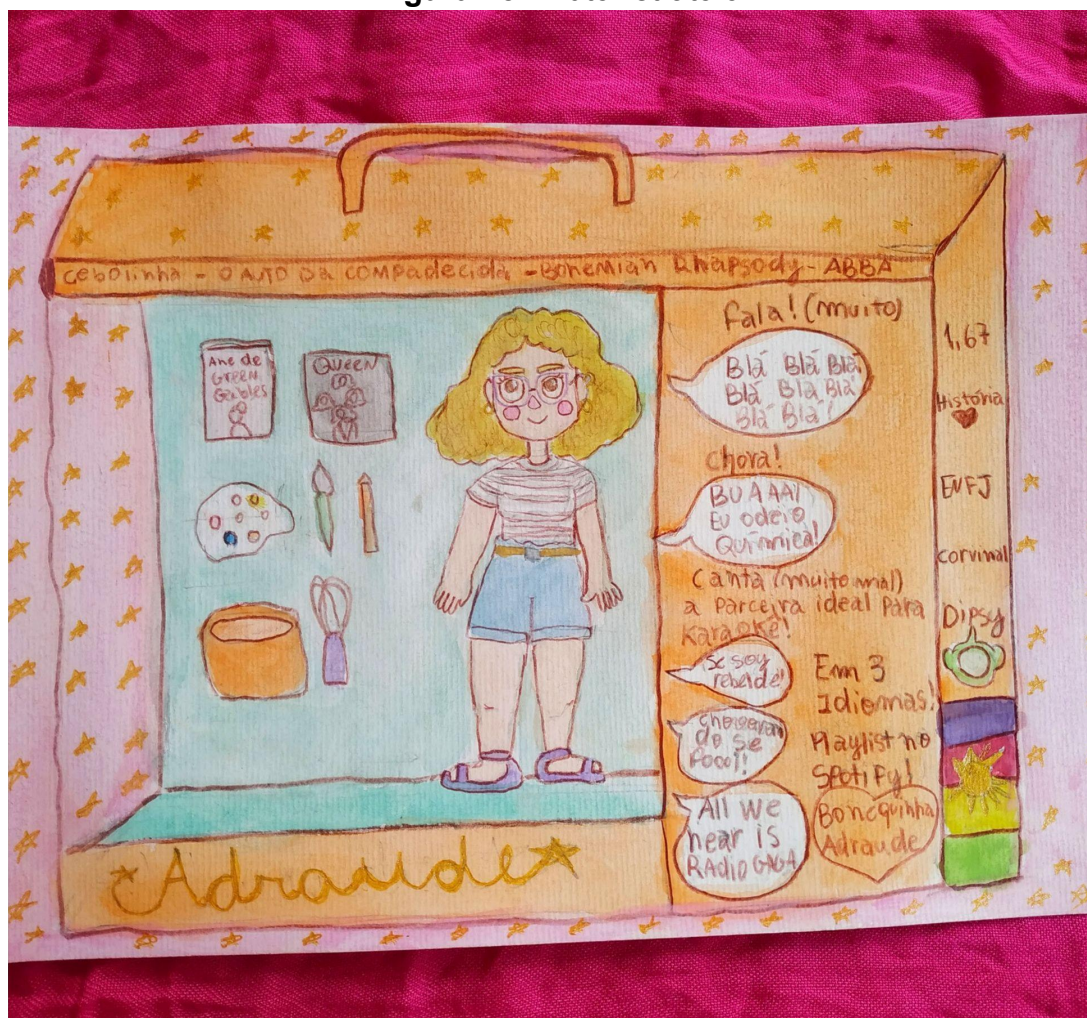 Cebolinha - O AUTO DA COMPADECIDA - BOHEMIAN Rhapsody - ABBA
Ane de
Green
Gables
QUEEN
Adraude
Fala! (muito)
Blá Blá Blá
Blá Bla Blá
Blá Blá!
chora!
BUÁAAA!
Eu odeio
Química!
Canta (muito mal)
a parceira ideal para
Karaokê!
Se soy
rebelde!
do se
foooi!
All we
hear is
RADIO GAGA
Em 3
Idiomas!
Playlist no
Spotify!
Bonequinha
Adraude
1,67
História
ENFJ
corvinal
Dipsy